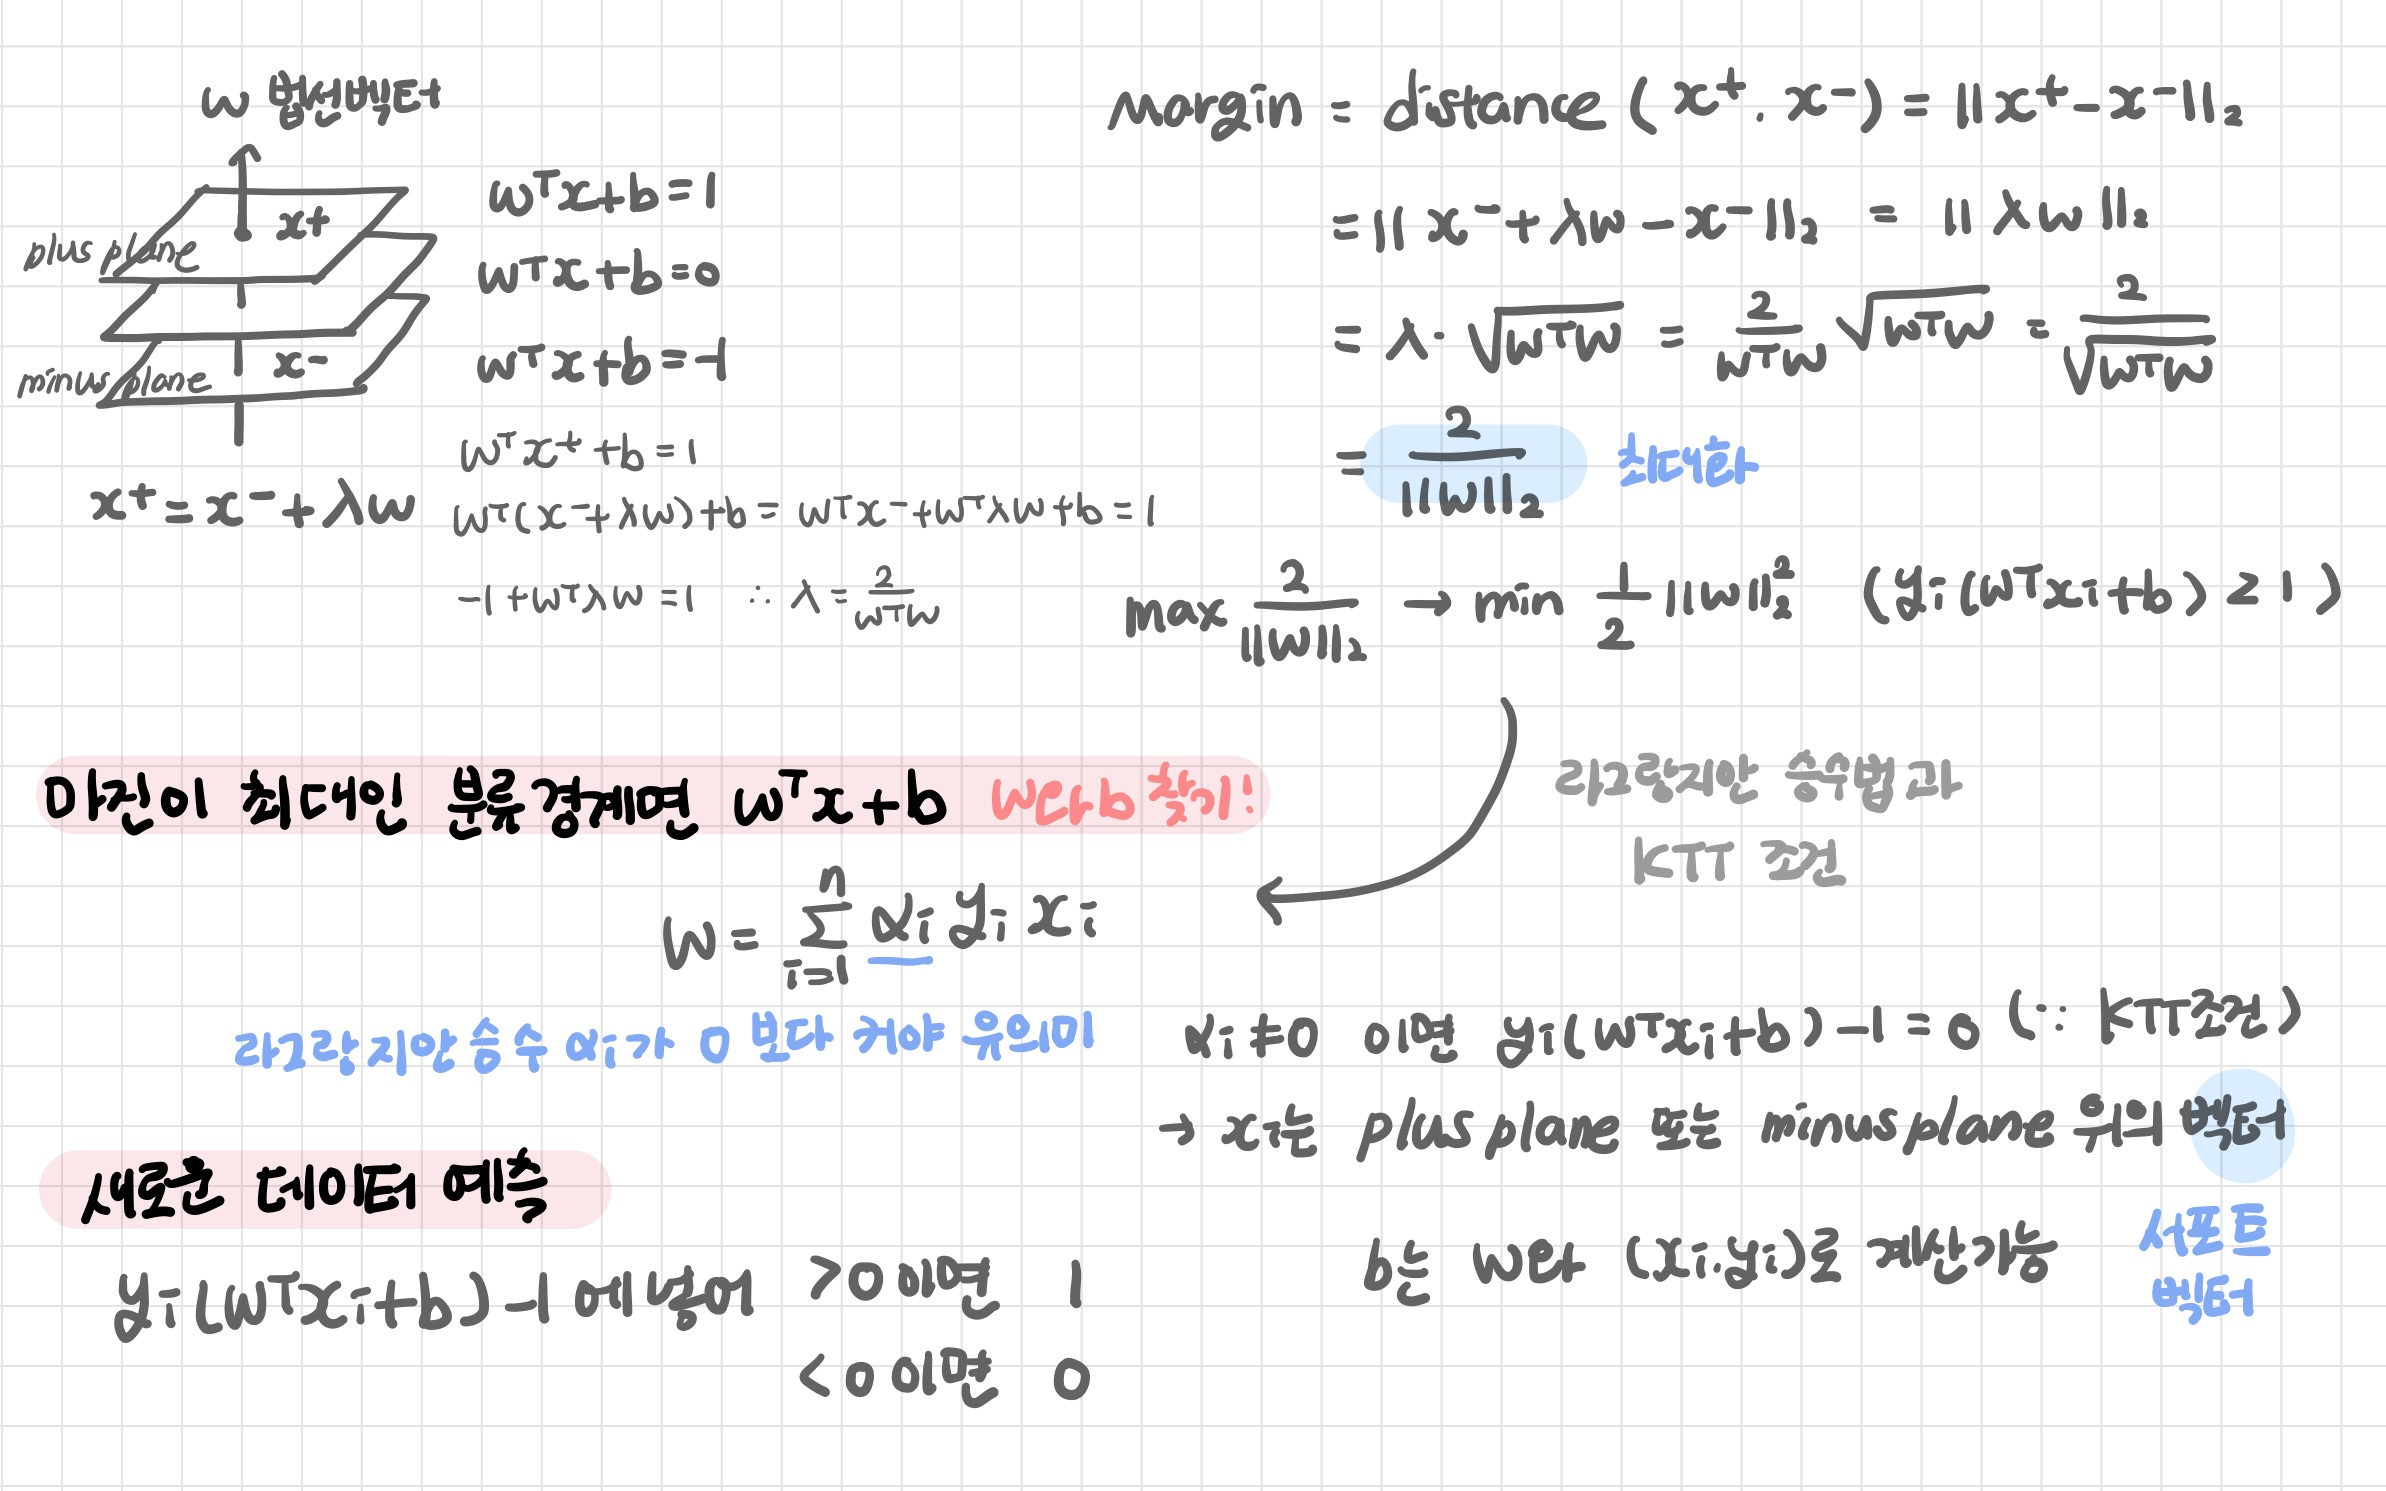 w 법선벡터
plus plane
x+
minus plane
x-
wᵀx+b=1
wᵀx+b=0
wᵀx+b=-1
x⁺=x⁻+λw
wᵀx⁺+b=1
wᵀ(x⁻+λw)+b=wᵀx⁻+wᵀλw+b=1
-1+wᵀλw=1 ∴ λ=2/wᵀw
Margin = distance(x⁺, x⁻) = ||x⁺-x⁻||₂
=||x⁻+λw-x⁻||₂ = ||λw||₂
= λ·√wᵀw = 2/wᵀw √wᵀw = 2/√wᵀw
= 2/||w||₂ 최대화
max 2/||w||₂ → min 1/2 ||w||₂² (yi(wᵀxi+b)≥1)
마진이 최대인 분류경계면 wᵀx+b w와 b 찾기!
라그랑지안 승수법과
KTT 조건
w = Σⁿᵢ₌₁ αi yi xi
라그랑지안승수 αi가 0 보다 커야 유의미
αi≠0 이면 yi(wᵀxi+b)-1=0 (∵ KTT조건)
→ xi는 plus plane 또는 minus plane 위의 벡터
서포트
벡터
b는 w와 (xi,yi)로 계산가능
새로운 데이터 예측
yi(wᵀxi+b)-1에 넣어 >0이면 1
<0이면 0